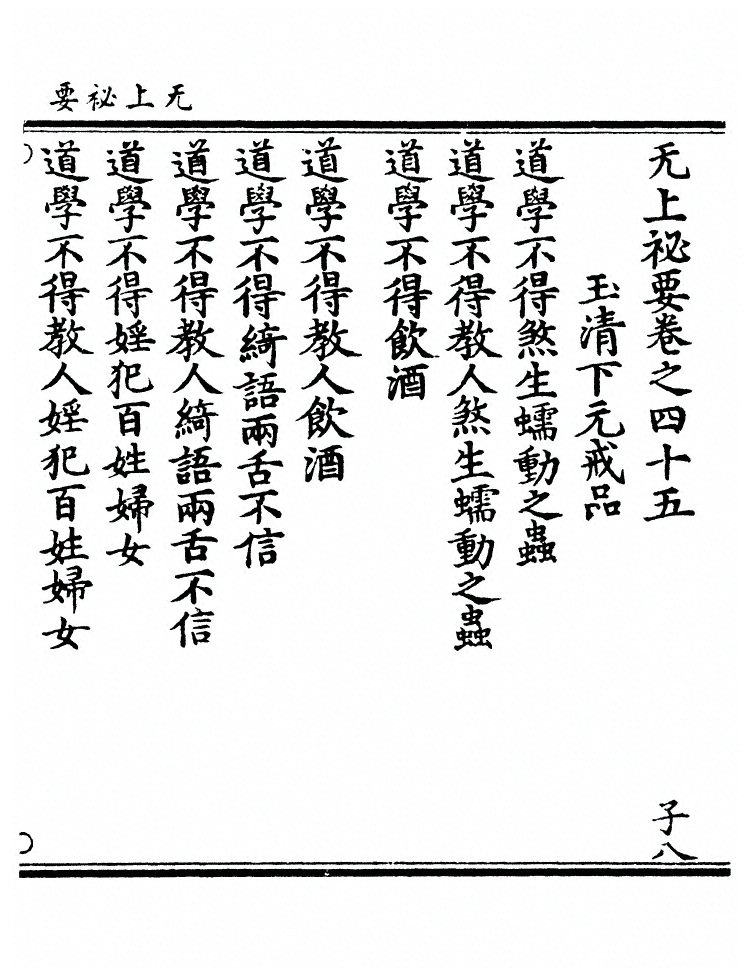 无上祕要
无上祕要卷之四十五
子八
玉清下元戒品
道學不得煞生蠕動之蟲
道學不得教人煞生蠕動之蟲
道學不得飲酒
道學不得教人飲酒
道學不得綺語兩舌不信
道學不得教人綺語兩舌不信
道學不得婬犯百姓婦女
道學不得教人婬犯百姓婦女